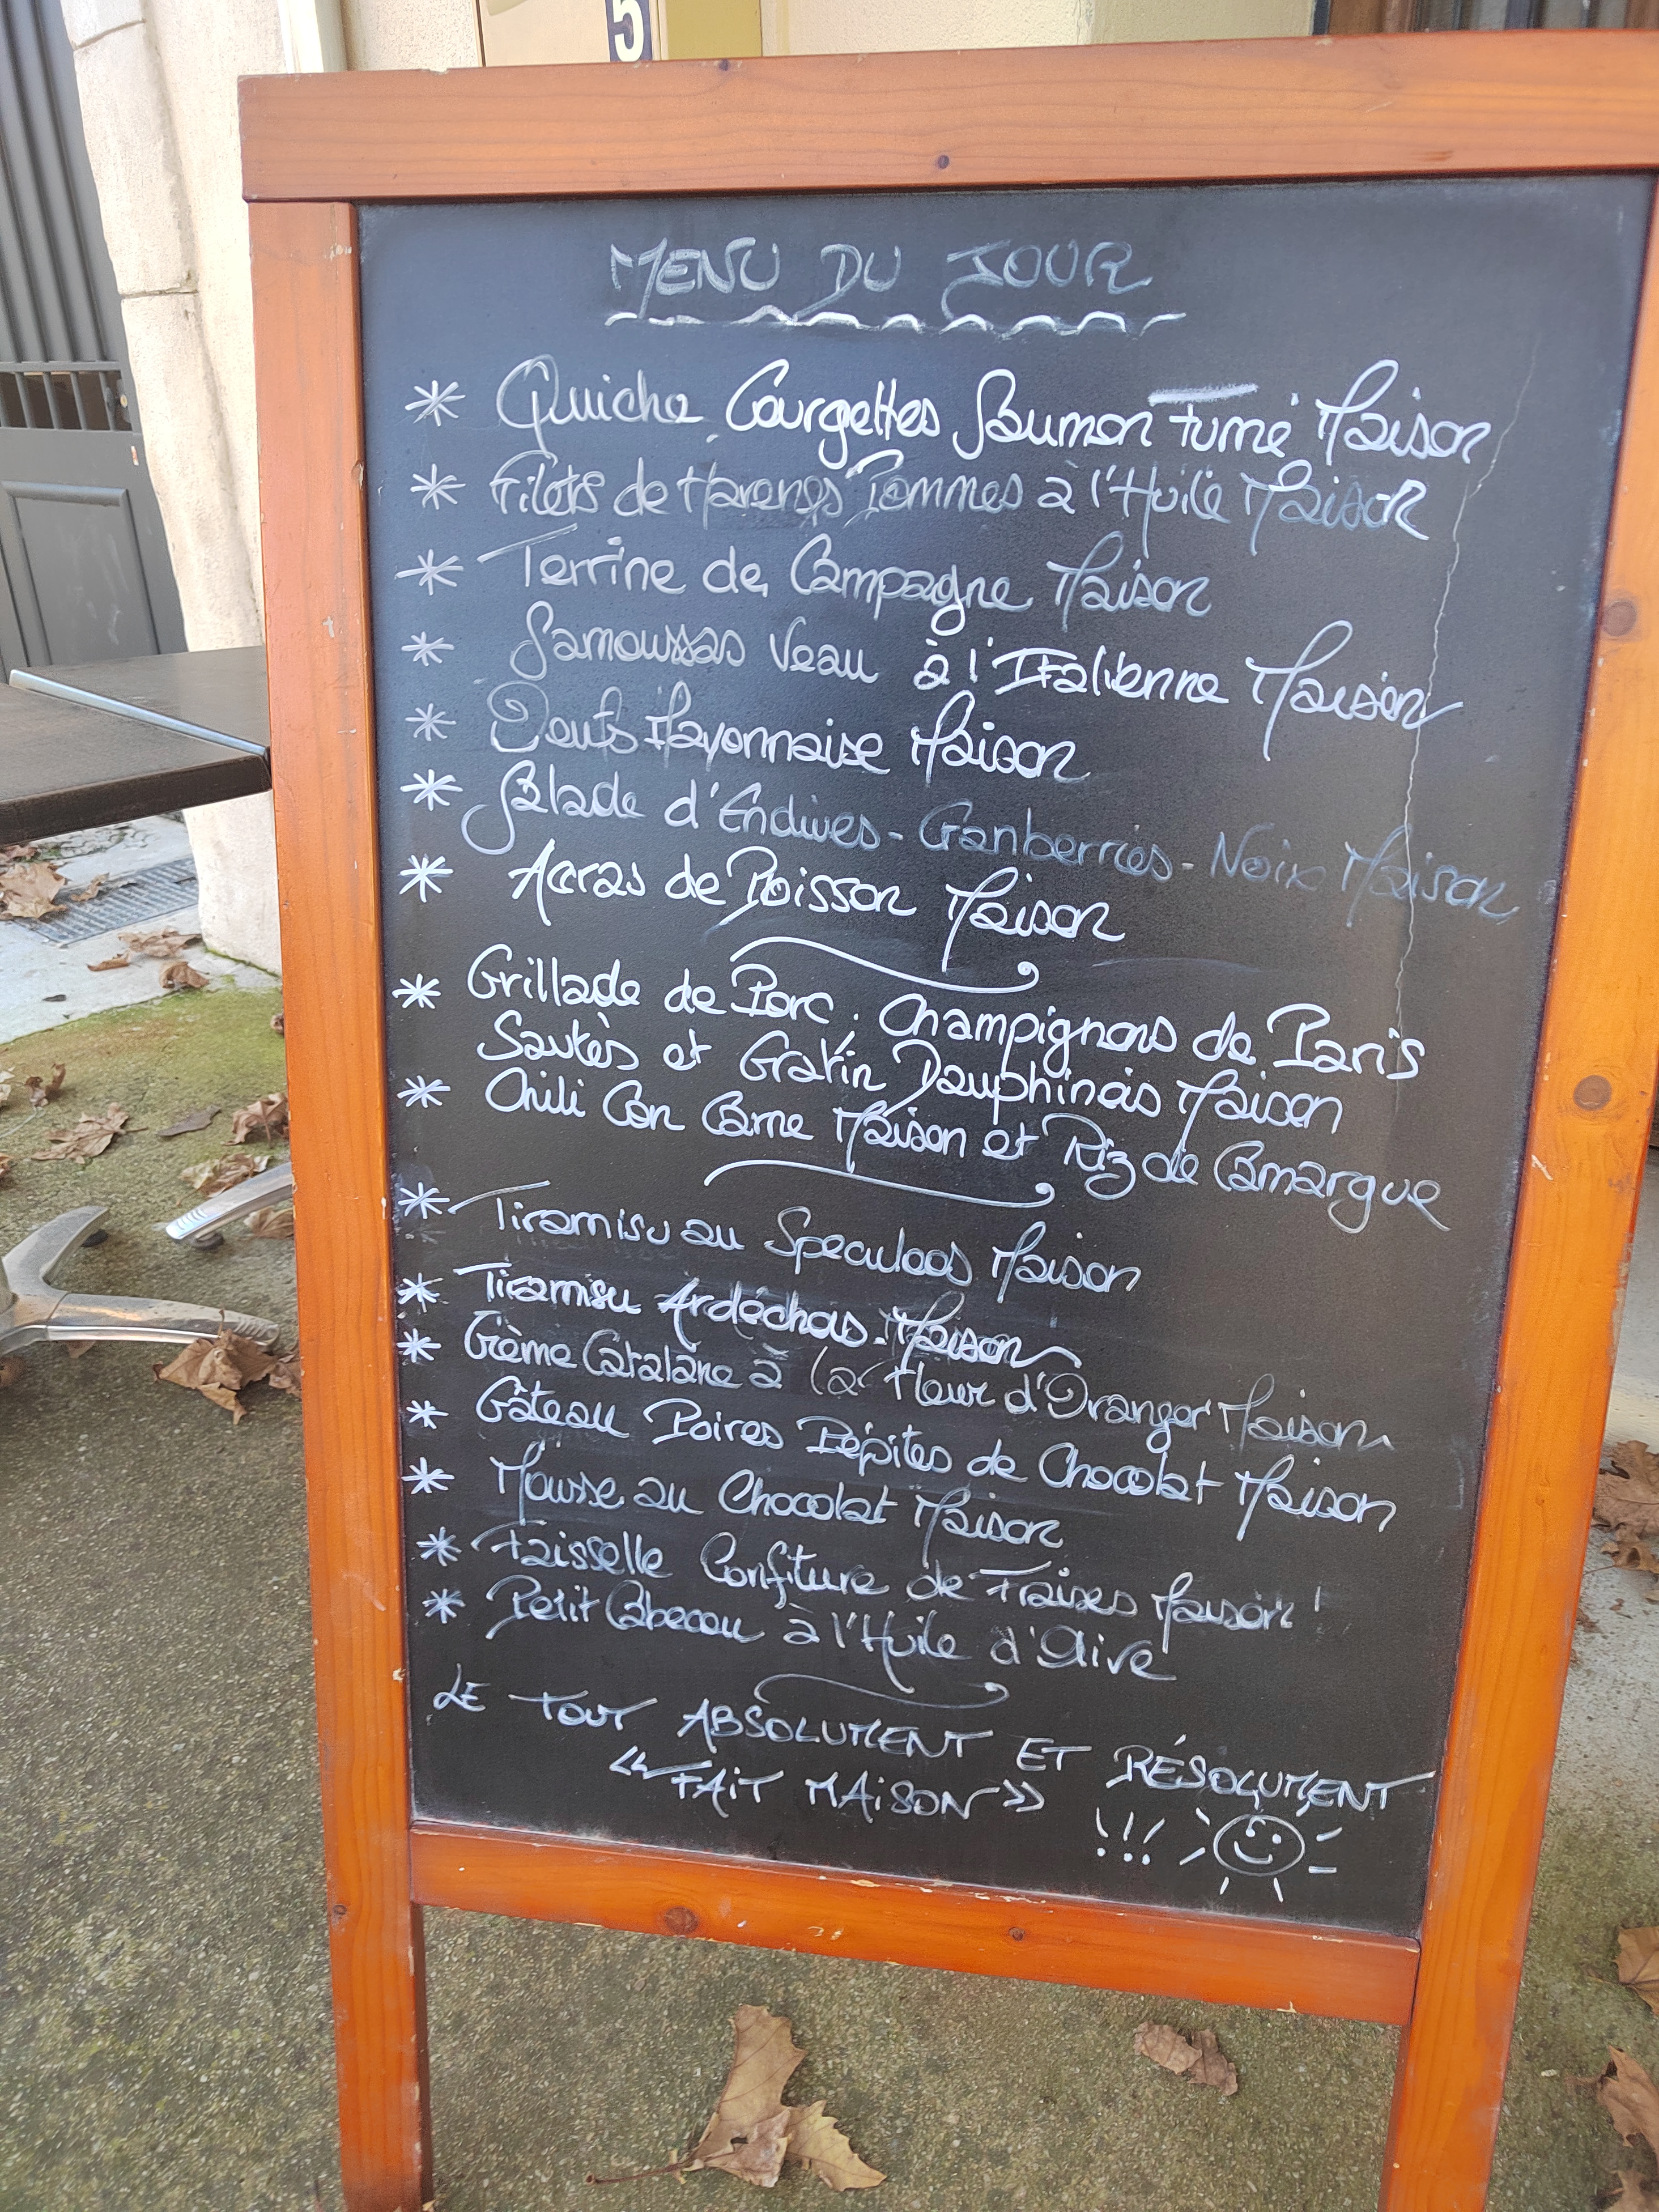 5
MENU DU JOUR
* Quiche Courgettes Saumon Fumé Maison
* Filets de Harengs Pommes à l'Huile Maison
* Terrine de Campagne Maison
* Samoussas Veau à l'Italienne Maison
* Oeufs Mayonnaise Maison
* Salade d'Endives - Cranberries - Noix Maison
* Accras de Poisson Maison
* Grillade de Porc. Champignons de Paris
Sautés et Gratin Dauphinois Maison
* Chili Con Carne Maison et Riz de Camargue
* Tiramisu au Speculoos Maison
* Tiramisu Ardéchois Maison
* Crème Catalane à la Fleur d'Oranger Maison
* Gâteau Poires Pépites de Chocolat Maison
* Mousse au Chocolat Maison
* Faisselle Confiture de Fraises Maison
* Petit Cabecou à l'Huile d'Olive
LE TOUT ABSOLUMENT ET RÉSOLUMENT
<< FAIT MAISON >> !!!